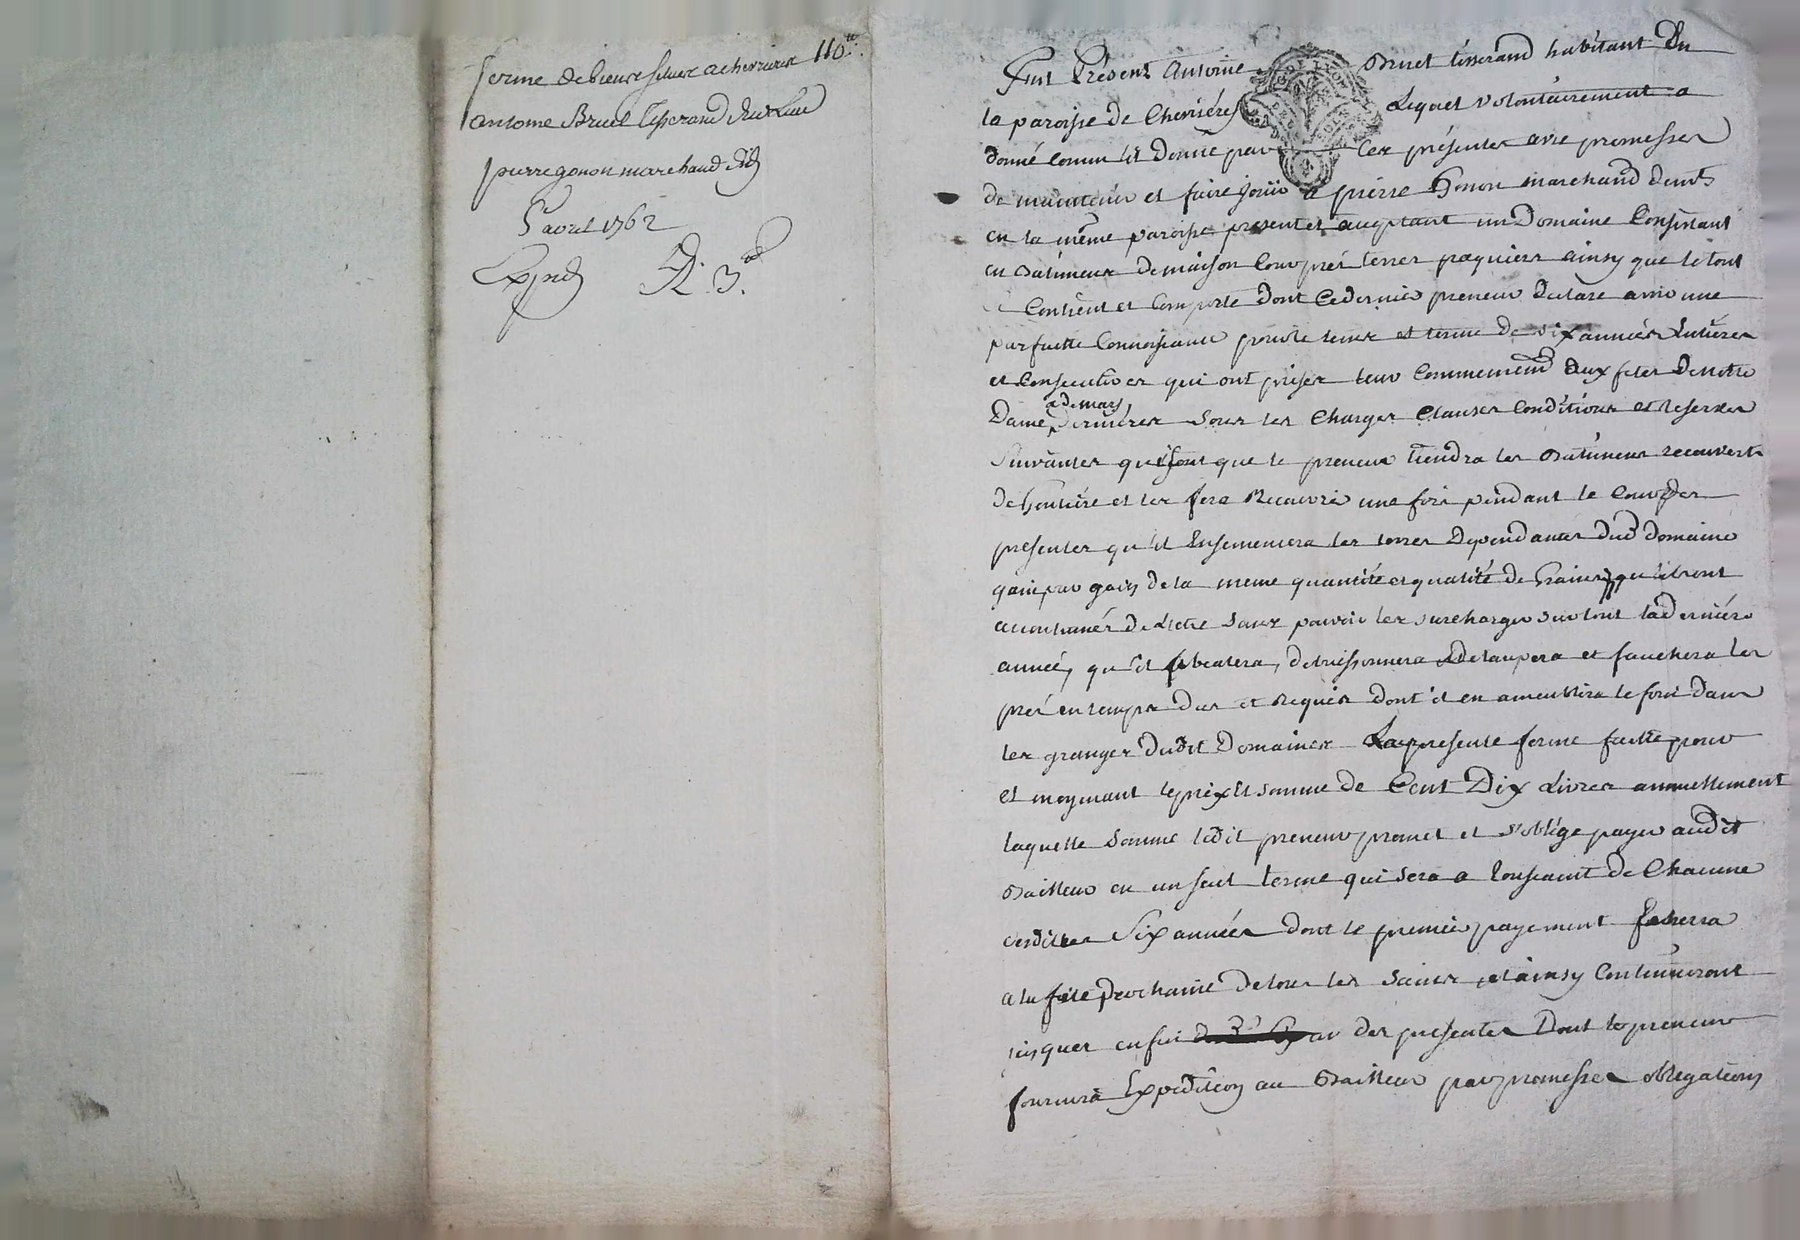 ferme de biens situes a chevrieres 110 ll.
antoine Bruel Tisserand
pierre gonon marchand dud
5 avril 1762
Expedié R. 3.
Fut Présent Antoine Bruel tisserand habitant En
la paroisse de Chevriéres Lequel volontairement a
donné comm' il Donne par Ces présentes avec promesses
de maintenir et faire joüir a pierre Gonon marchand demt
en la même paroisse present et acceptant un Domaine Consistant
en Batimens de maison Cour prés terres paquiers ainsy que le tout
Contient et Comporte dont Ce dernier preneur declare avoir une
parfaitte Connoissance pour le tems et terme de Six années Entieres
et Consecutives qui ont prises leur Commencemt aux fetes de notre
a de mars
Dame, dernieres Sous les Charges Clauses Conditions et reserves
Suivantes qui sont que le preneur tiendra les Batimens recouverts
de Goutiére et les fera Recouvrir une fois pendant le Cour des
presentes qu'il Ensemencera les terres Dependantes dud domaine
gain par gain de la meme quantité et qualité de Grains qu'ils sont
accoutumés de L'etre Sans pouvoir les surcharger sur tout la derniére
année, qu'il debuissonnera detaupera et fauchera les
prés en temps dus et requis dont il en ameublira le foin dans
les granges dudit Domaines La presente ferme faitte pour
et moyenant le prix et somme de Cent Dix Livres annuellement
laquelle Somme ledit preneur promet et s'oblige payer audit
Bailleur en un seul terme qui sera a Toussaint de Chacune
desdittes Six années dont le premier payement Echerra
a la féte prochaine de tous les Saints et ainsy Continüeront
jusques en fin des presentes Dont le preneur
fournira Expedition au Bailleur par promesses obligations